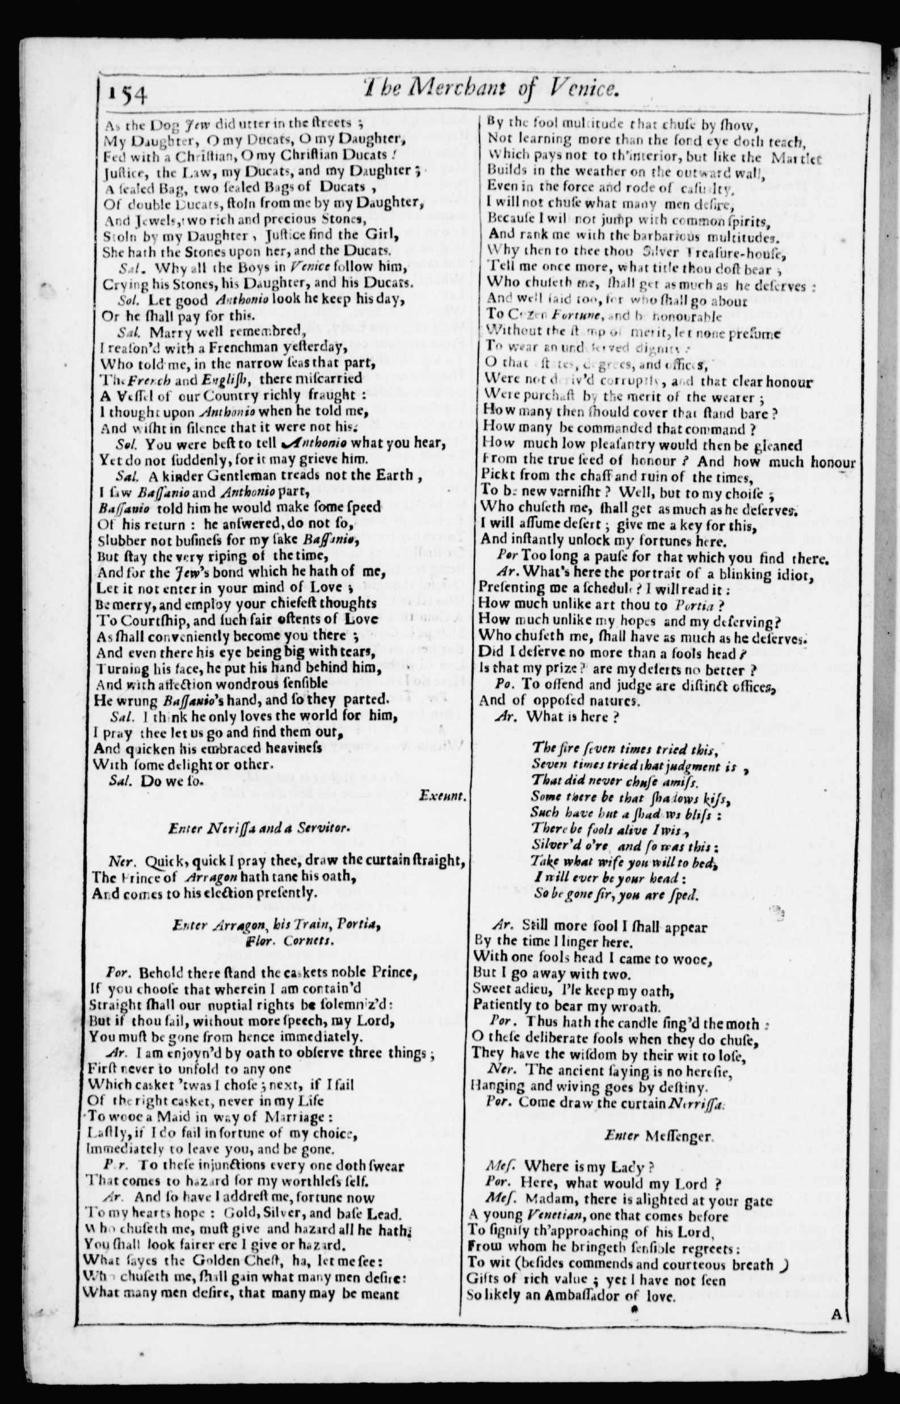 154
The Merchant of Venice.
As the Dog Jew did utter in the ſtreets ;
My Daughter, O my Ducats, O my Daughter,
Fed with a Chriſtian, O my Chriſtian Ducats !
Juſtice, the Law, my Ducats, and my Daughter ;
A ſealed Bag, two ſealed Bags of Ducats ,
Of double Ducats, ſtoln from me by my Daughter,
And Jewels, two rich and precious Stones,
Stoln by my Daughter , Juſtice find the Girl,
She hath the Stones upon her, and the Ducats.
Sal. Why all the Boys in Venice follow him,
Crying his Stones, his Daughter, and his Ducats.
Sol. Let good Anthonio look he keep his day,
Or he ſhall pay for this.
Sal. Marry well remembred,
I reaſon'd with a Frenchman yeſterday,
Who told me, in the narrow ſeas that part,
The French and Engliſh, there miſcarried
A Veſſel of our Country richly fraught :
I thought upon Anthonio when he told me,
And wiſht in ſilence that it were not his.
Sol. You were beſt to tell Anthonio what you hear,
Yet do not ſuddenly, for it may grieve him.
Sal. A kinder Gentleman treads not the Earth ,
I ſaw Baſſanio and Anthonio part,
Baſſanio told him he would make ſome ſpeed
Of his return : he anſwered, do not ſo,
Slubber not buſineſs for my ſake Baſſanio,
But ſtay the very riping of the time,
And for the Jew's bond which he hath of me,
Let it not enter in your mind of Love ;
Be merry, and employ your chiefeſt thoughts
To Courtſhip, and ſuch fair oſtents of Love
As ſhall conveniently become you there ;
And even there his eye being big with tears,
Turning his face, he put his hand behind him,
And with affection wondrous ſenſible
He wrung Baſſanio's hand, and ſo they parted.
Sal. I think he only loves the world for him,
I pray thee let us go and find them out,
And quicken his embraced heavineſs
With ſome delight or other.
Sal. Do we ſo.
Exeunt.
Enter Neriſſa and a Servitor.
Ner. Quick, quick I pray thee, draw the curtain ſtraight,
The Prince of Arragon hath tane his oath,
And comes to his election preſently.
Enter Arragon, his Train, Portia,
Flor. Cornets.
Por. Behold there ſtand the caskets noble Prince,
If you chooſe that wherein I am contain'd
Straight ſhall our nuptial rights be ſolemniz'd :
But if thou fail, without more ſpeech, my Lord,
You muſt be gone from hence immediately.
Ar. I am enjoyn'd by oath to obſerve three things ;
Firſt never to unfold to any one
Which casket 'twas I choſe ; next, if I fail
Of the right casket, never in my Life
To wooe a Maid in way of Marriage :
Laſtly, if I do fail in fortune of my choice,
Immediately to leave you, and be gone.
Por. To theſe injunctions every one doth ſwear
That comes to hazard for my worthleſs ſelf.
Ar. And ſo have I addreſt me, fortune now
To my hearts hope : Gold, Silver, and baſe Lead.
Who chuſeth me, muſt give and hazard all he hath;
You ſhall look fairer ere I give or hazard.
What ſayes the Golden Cheſt, ha, let me ſee :
Who chuſeth me, ſhall gain what many men deſire:
What many men deſire, that many may be meant
By the fool multitude that chuſe by ſhow,
Not learning more than the fond eye doth teach,
Which pays not to th'interior, but like the Martlet
Builds in the weather on the outward wall,
Even in the force and rode of caſualty,
I will not chuſe what many men deſire,
Becauſe I wil not jump with common ſpirits,
And rank me with the barbarious multitudes.
Why then to thee thou Silver Treaſure-houſe,
Tell me once more, what title thou doſt bear ;
Who chuſeth me, ſhall get as much as he deſerves :
And well ſaid too, for who ſhall go about
To Cozen Fortune, and b honourable
Without the ſtamp of merit, let none preſume
To wear an undeſerved dignity :
O that eſtates, degrees, and offices,
Were not deriv'd corruptly, and that clear honour
Were purchaſt by the merit of the wearer ;
How many then ſhould cover that ſtand bare ?
How many be commanded that command ?
How much low pleaſantry would then be gleaned
From the true ſeed of honour ? And how much honour
Pickt from the chaff and ruin of the times,
To be new varniſht ? Well, but to my choiſe ;
Who chuſeth me, ſhall get as much as he deſerves.
I will aſſume deſert ; give me a key for this,
And inſtantly unlock my fortunes here.
Por Too long a pauſe for that which you find there.
Ar. What's here the portrait of a blinking idiot,
Preſenting me a ſchedule ? I will read it :
How much unlike art thou to Portia ?
How much unlike my hopes and my deſerving?
Who chuſeth me, ſhall have as much as he deſerves.
Did I deſerve no more than a fools head ?
Is that my prize ? are my deſerts no better ?
Po. To offend and judge are diſtinct offices,
And of oppoſed natures.
Ar. What is here ?
The fire ſeven times tried this,
Seven times tried that judgment is ,
That did never chuſe amiſs.
Some there be that ſhadows kiſs,
Such have but a ſhadows bliſs :
There be fools alive I wis,
Silver'd o're and ſo was this :
Take what wife you will to bed,
I will ever be your head :
So be gone ſir, you are ſped.
Ar. Still more fool I ſhall appear
By the time I linger here.
With one fools head I came to wooe,
But I go away with two.
Sweet adieu, I'le keep my oath,
Patiently to bear my wroath.
Por. Thus hath the candle ſing'd the moth :
O theſe deliberate fools when they do chuſe,
They have the wiſdom by their wit to loſe,
Ner. The ancient ſaying is no hereſie,
Hanging and wiving goes by deſtiny.
Por. Come draw the curtain Nerriſſa.
Enter Meſſenger.
Meſ. Where is my Lady ?
Por. Here, what would my Lord ?
Meſ. Madam, there is alighted at your gate
A young Venetian, one that comes before
To ſignify th'approaching of his Lord,
From whom he bringeth ſenſible regreets :
To wit (beſides commends and courteous breath )
Gifts of rich value ; yet I have not ſeen
So likely an Ambaſſador of love.
A